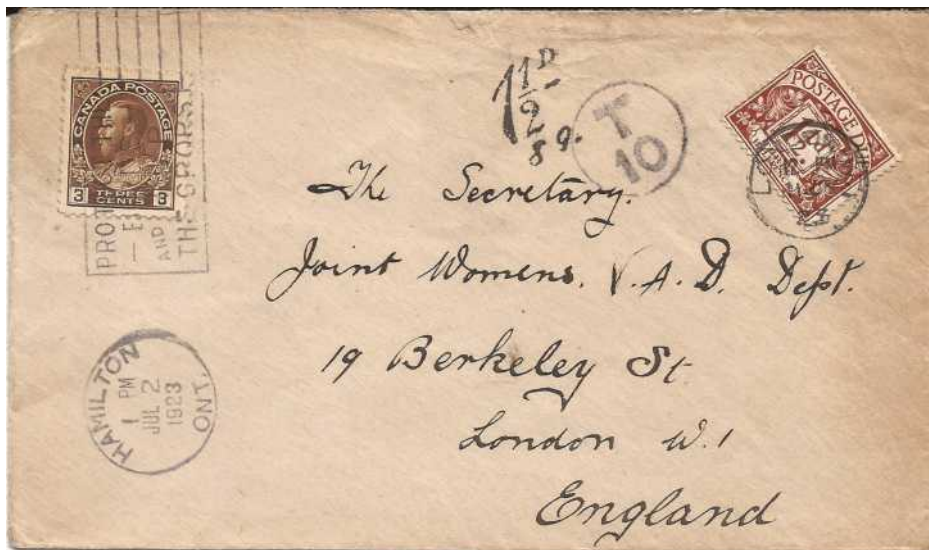 CANADA POSTAGE
3 THREE CENTS 3
AND
THE CROPS!
1½D
8 9.
T
10
POSTAGE DUE
1½
The Secretary.
Joint Womens. V.A.D. Dept.
19 Berkeley St.
London W.1
England
HAMILTON
1 PM
JUL 2
1923
ONT.